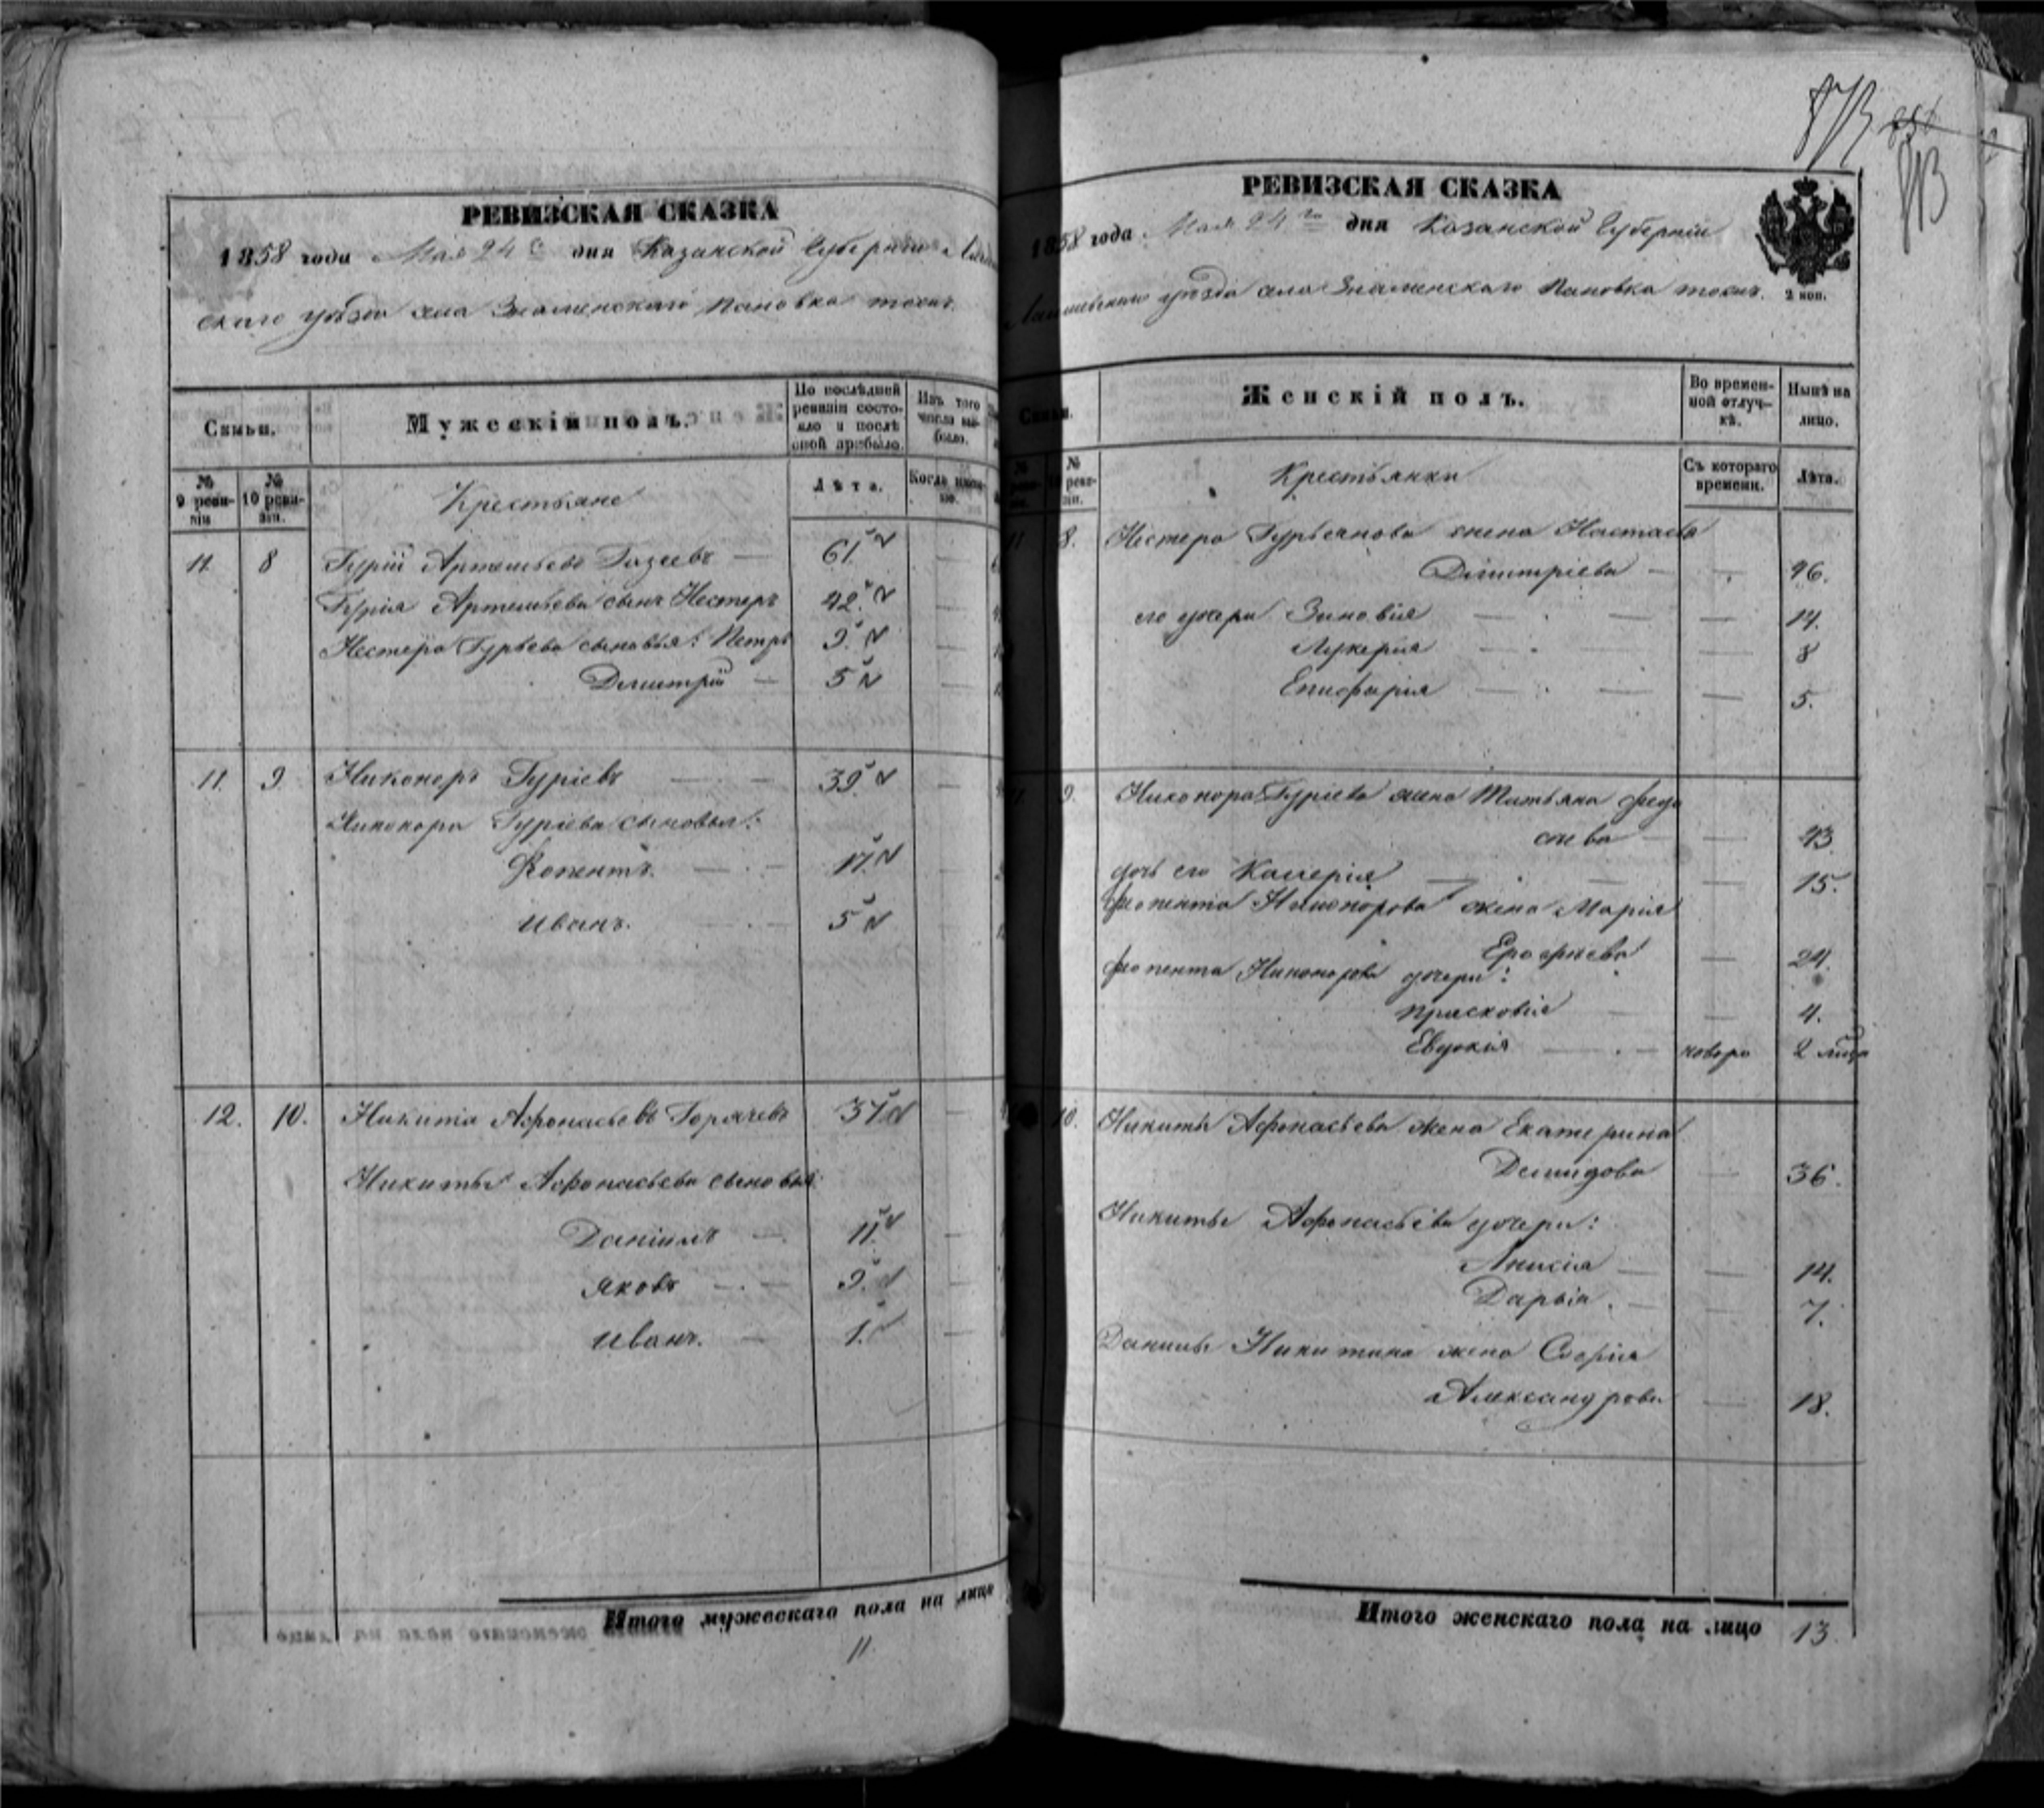 РЕВИЗСКАЯ СКАЗКА
1858 года Мая 24 дня Казанской Губернии
скаго уѣзда села Знаменскаго Пановка тожъ.
Семьи.
Мужескій полъ.
По послѣдней ревизіи состояло и послѣ оной прибыло.
Изъ того числа выбыло.
№ 9 ревизіи
№ 10 ревизіи.
Крестьяне
Лѣта.
Когда именно.
11. 8 Гурій Артемьевъ — 61.
Гурія Артемьева сынъ Нестеръ 42.
Нестера Гурьева сыновья: Петръ 9.
Димитрій — 5
11. 9. Никоноръ Гуріевъ — 39.
Никонора Гуріева сыновья:
17.
Иванъ. — 5
12. 10. Никита Афонасьевъ Горячевъ 37.
Никиты Афонасьева сыновья:
Даніилъ — 11.
Яковъ — 9.
Иванъ. — 1.
Итого мужескаго пола на лицо
11.
873
813
РЕВИЗСКАЯ СКАЗКА
1858 года Мая 24го дня Казанской Губерніи
Лаишевскаго уѣзда села Знаменскаго Пановка тожъ.
2 коп.
Семьи.
Женскій полъ.
Во временной отлучкѣ.
Нынѣ на лицо.
№ 10 ревизіи.
Крестьянки
Съ котораго времени.
Лѣта.
11 8. Нестера жена Настасья
Димитріева — 46.
его дочери Зиновія — 14.
Лукерія — 8
5.
9. Никонора Гуріева жена Татьяна
43
дочь его — 15.
Никонорова жена Марія
Ерофѣева — 24.
Никонорова дочери:
Прасковія — 4.
Евдокія —
10. Никиты Афонасьева жена Екатерина
Демидова — 36.
Никиты Афонасьева дочери:
Анисія — 14.
Дарья. — 7.
Данилы Никитина жена Софія
Александрова — 18.
Итого женскаго пола на лицо 13